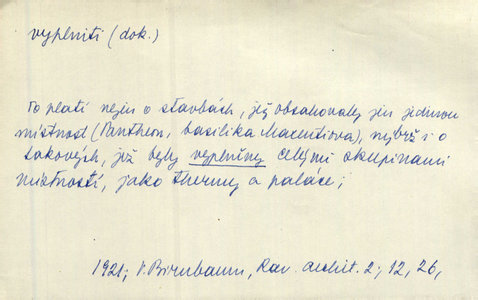 vyplniti (dok.)
To platí nejen o stavbách, jež obsahovaly jen jedinou
místnost (Pantheon, basilika Maxentiova), nýbrž i o
takových, jež byly vyplněny celými skupinami
místností, jako thermy a paláce;
1921; V. Birnbaum, Rav. archit. 2; 12, 26,